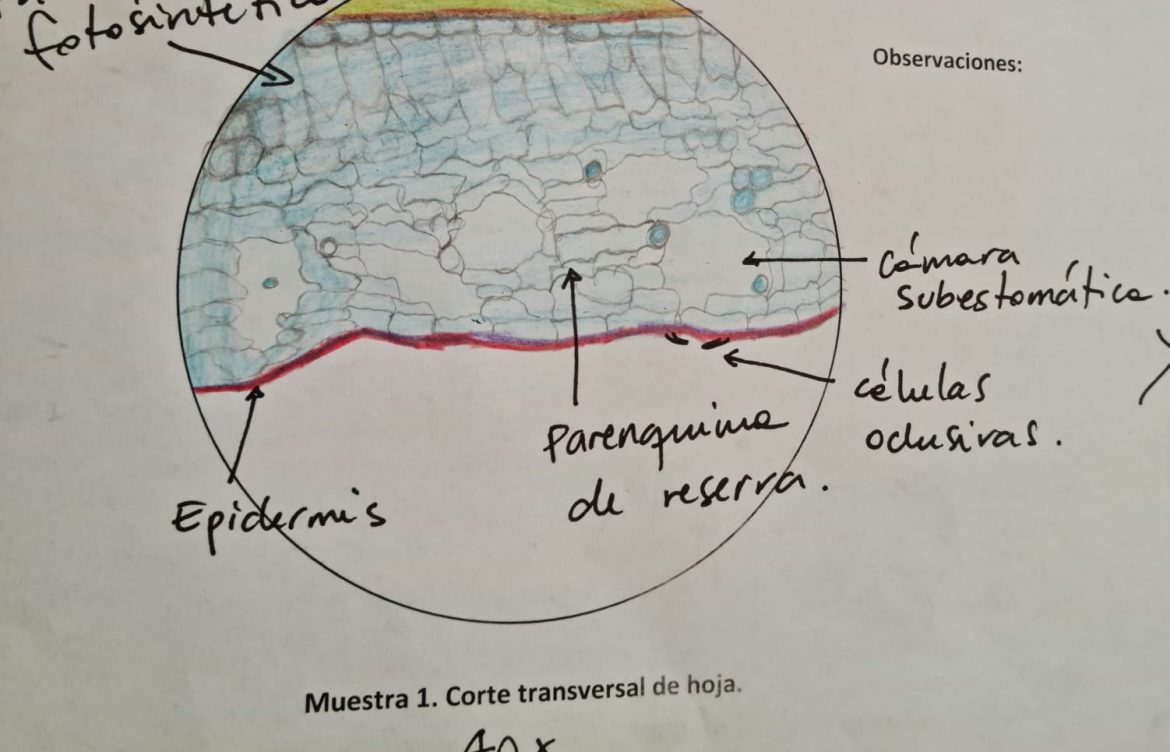 fotosintético
Observaciones:
cámara
subestomática.
células
oclusivas.
Parenquima
de reserva.
Epidermis
Muestra 1. Corte transversal de hoja.
40x